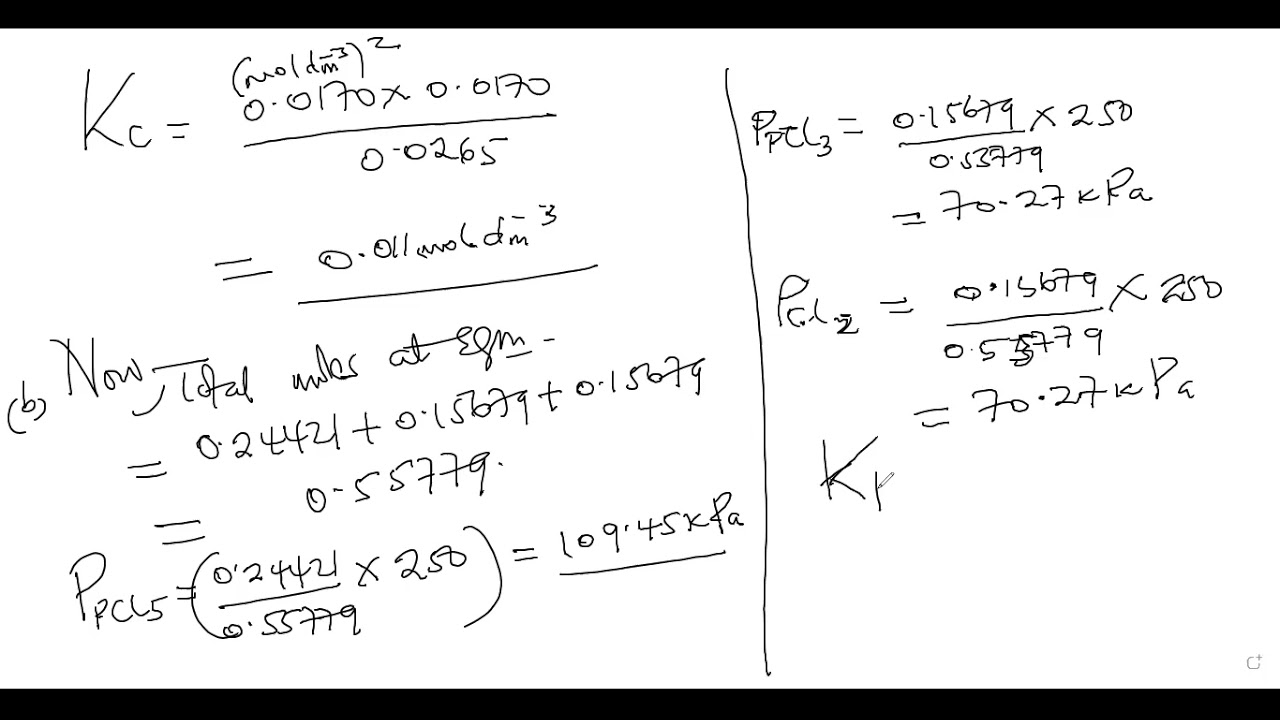 (mol dm⁻³)²
Kc = 0.0170 × 0.0170 / 0.0265
= 0.011 mol dm⁻³
(b) Now, Total moles at Eqm -
= 0.24421 + 0.15679 + 0.15679
= 0.55779.
PPCl5 = (0.24421 / 0.55779 × 250) = 109.45 kPa
PPCl3 = 0.15679 / 0.53779 × 250
= 70.27 kPa
PCl2 = 0.15679 / 0.55779 × 250
= 70.27 kPa
K